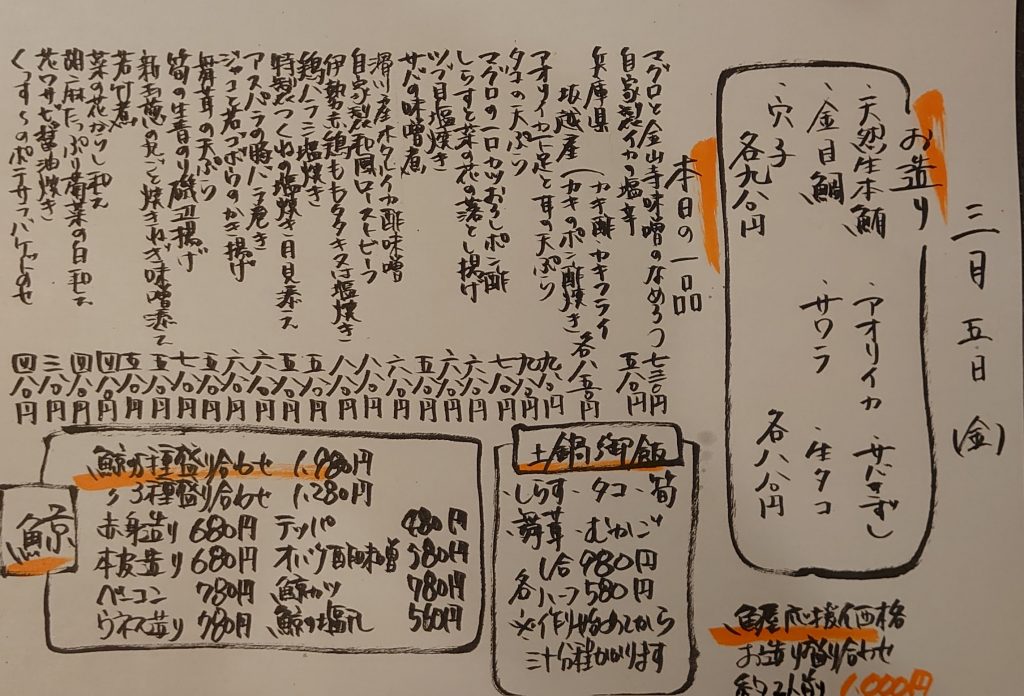 三月五日(金)
お造り
・天然生本鮪 ・アオリイカ ・サバきずし
・金目鯛 ・サワラ ・生タコ
・穴子
各九八〇円 各八八〇円
本日の一品
マグロと金山寺味噌のなめろう 七三〇円
自家製イカの塩辛 五八〇円
兵庫県
坂越産(カキ酢・カキフライ
(カキのポン酢焼き) 各八五〇円
アオリイカ下足と耳の天ぷら 九八〇円
タコの天ぷら 九八〇円
マグロの一口カツおろしポン酢 七八〇円
しらすと菜の花の落とし揚げ 六八〇円
ツブ貝塩焼き 六八〇円
サバの味噌煮 五八〇円
滑川産ホタルイカ酢味噌 六八〇円
自家製和風ローストビーフ 八八〇円
伊勢赤鶏ももタタキ又は塩焼き 八八〇円
鶏ハラミ塩焼き 五八〇円
特製つくねの塩焼き月見添え 五八〇円
アスパラの豚バラ巻き 六八〇円
ジャコと若ゴボウのかき揚げ 六八〇円
舞茸の天ぷら 五八〇円
筍の生青のり磯辺揚げ 七八〇円
新玉葱の丸ごと焼きねぎ味噌添え 五八〇円
若竹煮 五八〇円
菜の花からし和え 四八〇円
胡麻たっぷり菊菜の白和え 四八〇円
花ワサビ醤油焼き 三八〇円
くんすーのポテサラバゲットのせ 四八〇円
土鍋御飯
・しらす・タコ・筍
・舞茸・むかご
一合980円
各ハーフ580円
※作り始めてから
三十分程かかります
鯨
鯨5種盛り合わせ 1,980円
〃3種盛り合わせ 1,280円
赤身造り 680円 テッパ 480円
本皮造り 680円 オバケ酢味噌 580円
ベーコン 780円 鯨カツ 780円
ウネス造り 780円 鯨の塩ゆで 560円
魚屋応援価格
お造り盛り合わせ
約2人前 1,000円